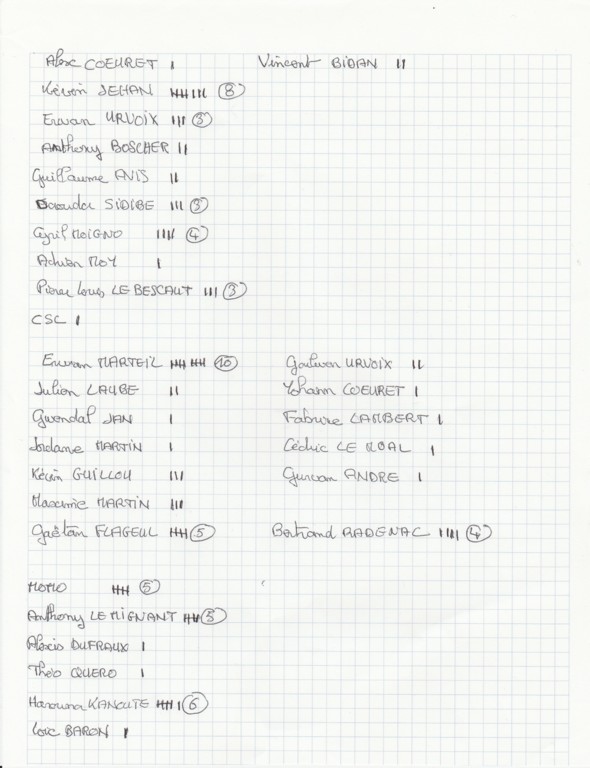 Alex COEURET I Vincent BIDAN II
Kévin JEHAN IIIII III (8)
Erwan URVOIX III (3)
Anthony BOSCHER II
Guillaume AVIS II
Daouda SIDIBE III (3)
Cyril MOIGNO IIII (4)
Adrien MOY I
Pierre Louis LE BESCAUT III (3)
CSC I
Erwan MARTEIL IIIII IIIII (10) Goulwen URVOIX II
Julien LAUBE II Yohann COEURET I
Gwendal JAN I Fabrice LAMBERT I
Jordane MARTIN I Cédric LE
Kévin GUILLOU III Gurvan ANDRE I
Maxime MARTIN III
Gaëtan FLAGEUL IIIII (5) Bertrand RADENAC IIII (4)
MOMO IIIII (5)
Anthony LE MIGNANT IIIII (5)
Alexis DUFRAUX I
Théo QUERO I
Harouna KANOUTE IIIII I (6)
Loïc BARON I